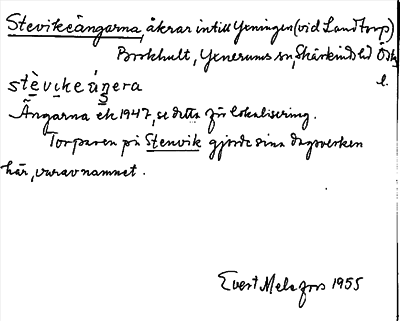 Stevikeängarna, åkrar intill Yxningen (vid Landtorp)
Borkhult, Yxnerums sn, Skärkinds hd Östg l.
stèvikeángera
Ängarna ek 1947, se detta för lokalisering.
Torparen på Stenvik gjorde sina dagsverken
här, varav namnet.
Evert Melefors 1955